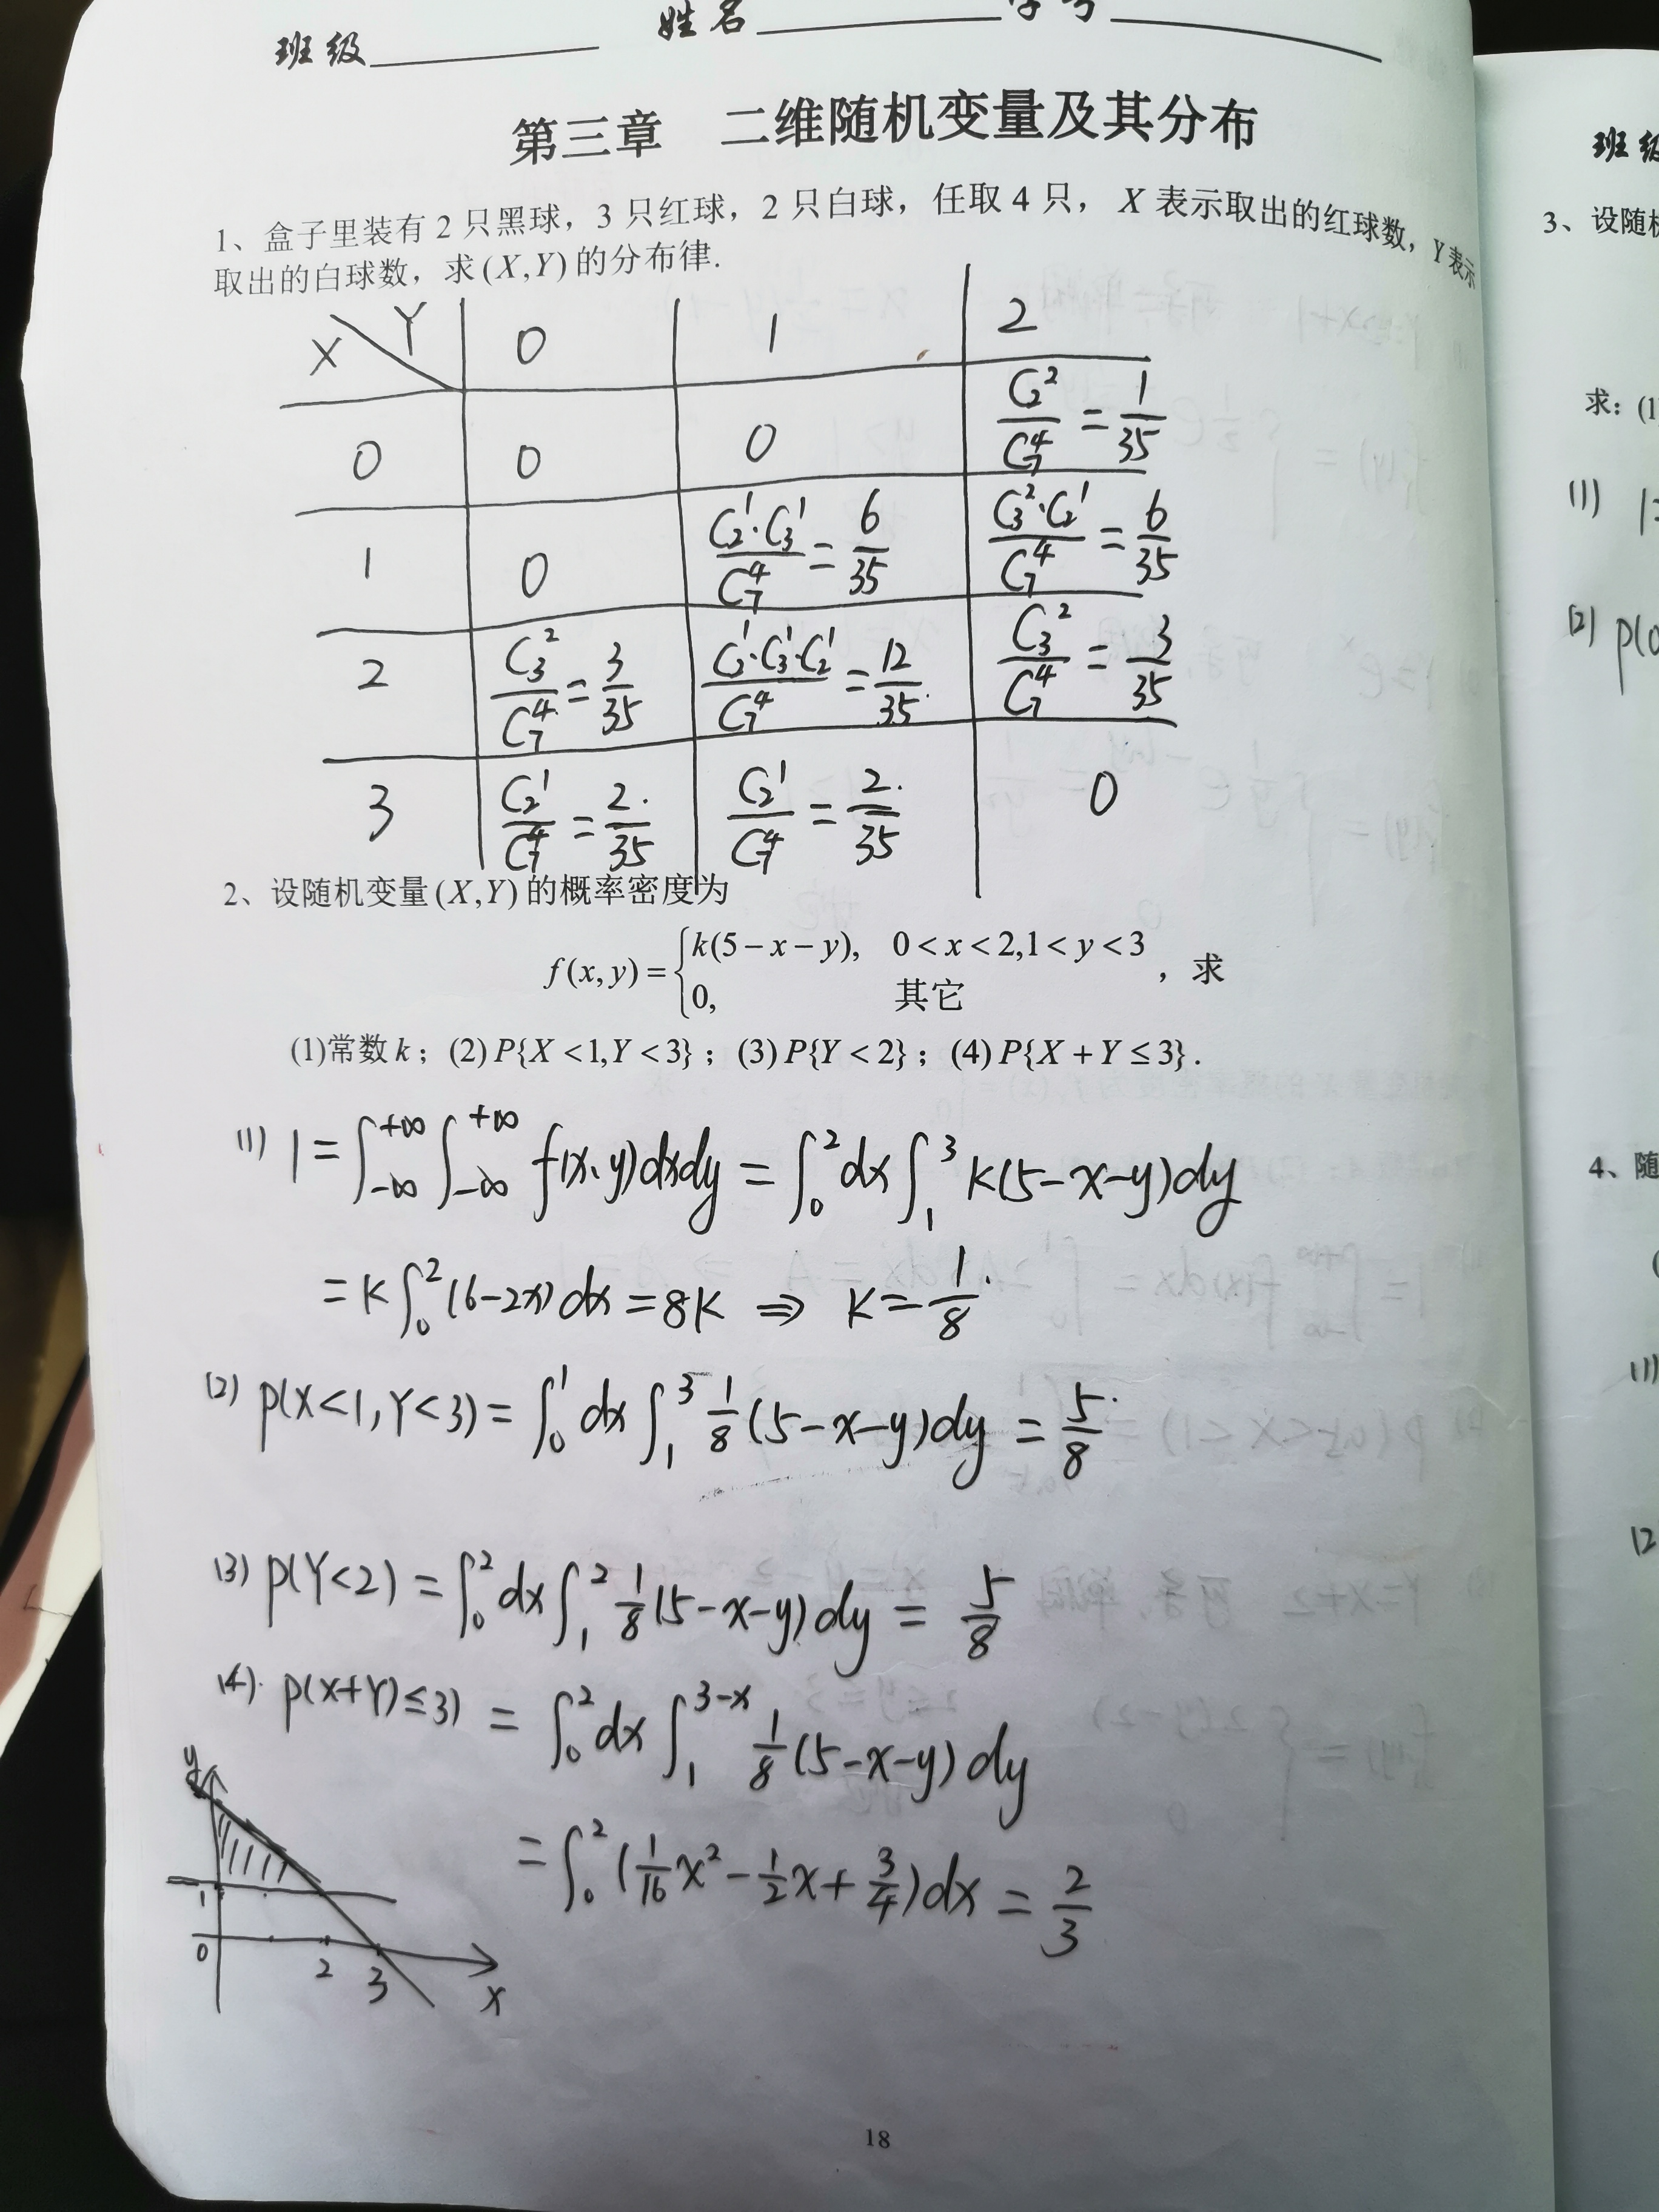 班级 姓名 学号
第三章 二维随机变量及其分布
1、盒子里装有 2 只黑球，3 只红球，2 只白球，任取 4 只， X 表示取出的红球数，Y 表示
取出的白球数，求 (X,Y) 的分布律.
X Y 0 1 2
0 0 0 C₂²/C₇⁴ = 1/35
1 0 C₂¹·C₃¹/C₇⁴ = 6/35 C₃²·C₂¹/C₇⁴ = 6/35
2 C₃²/C₇⁴ = 3/35 C₂¹·C₃¹·C₂¹/C₇⁴ = 12/35 C₃²/C₇⁴ = 3/35
3 C₂¹/C₇⁴ = 2/35 C₂¹/C₇⁴ = 2/35 0
2、设随机变量 (X,Y) 的概率密度为
f(x,y) = { k(5−x−y), 0<x<2,1<y<3
0, 其它 ，求
(1)常数 k；(2) P{X<1,Y<3}；(3) P{Y<2}；(4) P{X+Y≤3}.
(1) 1 = ∫_{-∞}^{+∞} ∫_{-∞}^{+∞} f(x,y)dxdy = ∫₀² dx ∫₁³ k(5−x−y)dy
= k∫₀² (6−2x)dx = 8k ⇒ k = 1/8.
(2) p(X<1,Y<3) = ∫₀¹ dx ∫₁³ 1/8 (5−x−y)dy = 5/8.
(3) p(Y<2) = ∫₀² dx ∫₁² 1/8 (5−x−y)dy = 5/8
(4). p(X+Y)≤3) = ∫₀² dx ∫₁^{3−x} 1/8 (5−x−y)dy
= ∫₀² (1/16 x² − 1/2 x + 3/4)dx = 2/3
y
1
0 2 3 x
18
班级
3、设随机
求：(1
(1) 1=
(2) p(0
4、随
(1)
(2